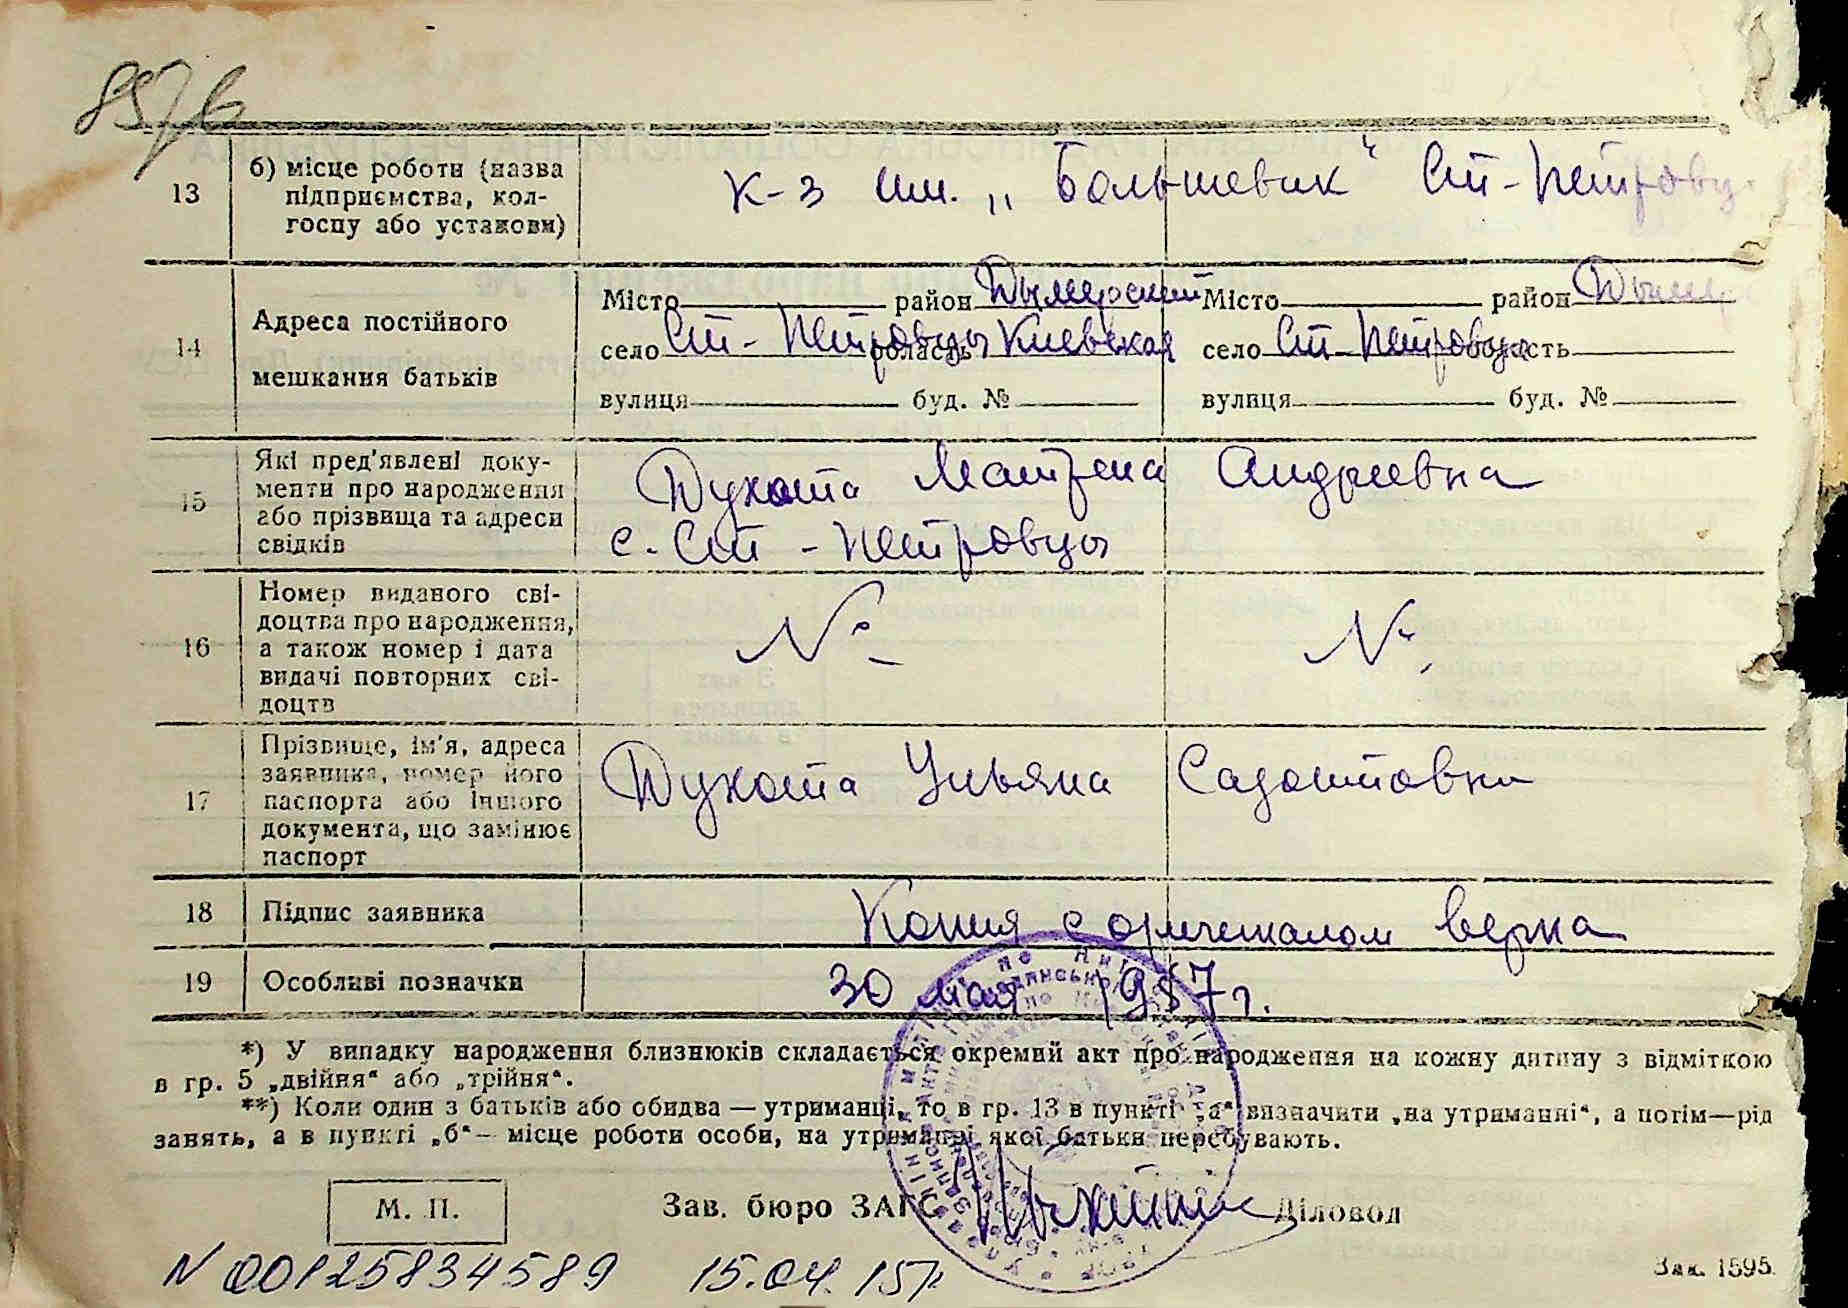 857в
13
б) місце роботи (назва
підприємства, кол-
госпу або установи)
к-з им. „Большевик“ Ст-Петровцы
14
Адреса постійного
мешкання батьків
Місто район Дымерский Місто район Дымер
село Ст-Петровцы область Киевская село Ст-Петровцы область
вулиця буд. № вулиця буд. №
15
Які пред'явлені доку-
менти про народження
або прізвища та адреси
свідків
Духота Матрена Андреевна
с. Ст-Петровцы
16
Номер виданого сві-
доцтва про народження,
а також номер і дата
видачі повторних сві-
доцтв
№ №
17
Прізвище, ім'я, адреса
заявника, номер його
паспорта або іншого
документа, що замінює
паспорт
Духота Ульяна
18
Підпис заявника
Копия с оригеналом верна
19
Особливі позначки
30 мая 1957 г.
*) У випадку народження близнюків складається окремий акт про народження на кожну дитину з відміткою
в гр. 5 „двійня“ або „трійня“.
**) Коли один з батьків або обидва — утриманці, то в гр. 13 в пункті „а“ визначити „на утриманні“, а потім—рід
занять, а в пункті „б“ — місце роботи особи, на утриманні якої батьки перебувають.
М. П.
Зав. бюро ЗАГС
Діловод
N 00125834589 15.04.15р
Зак. 1595.